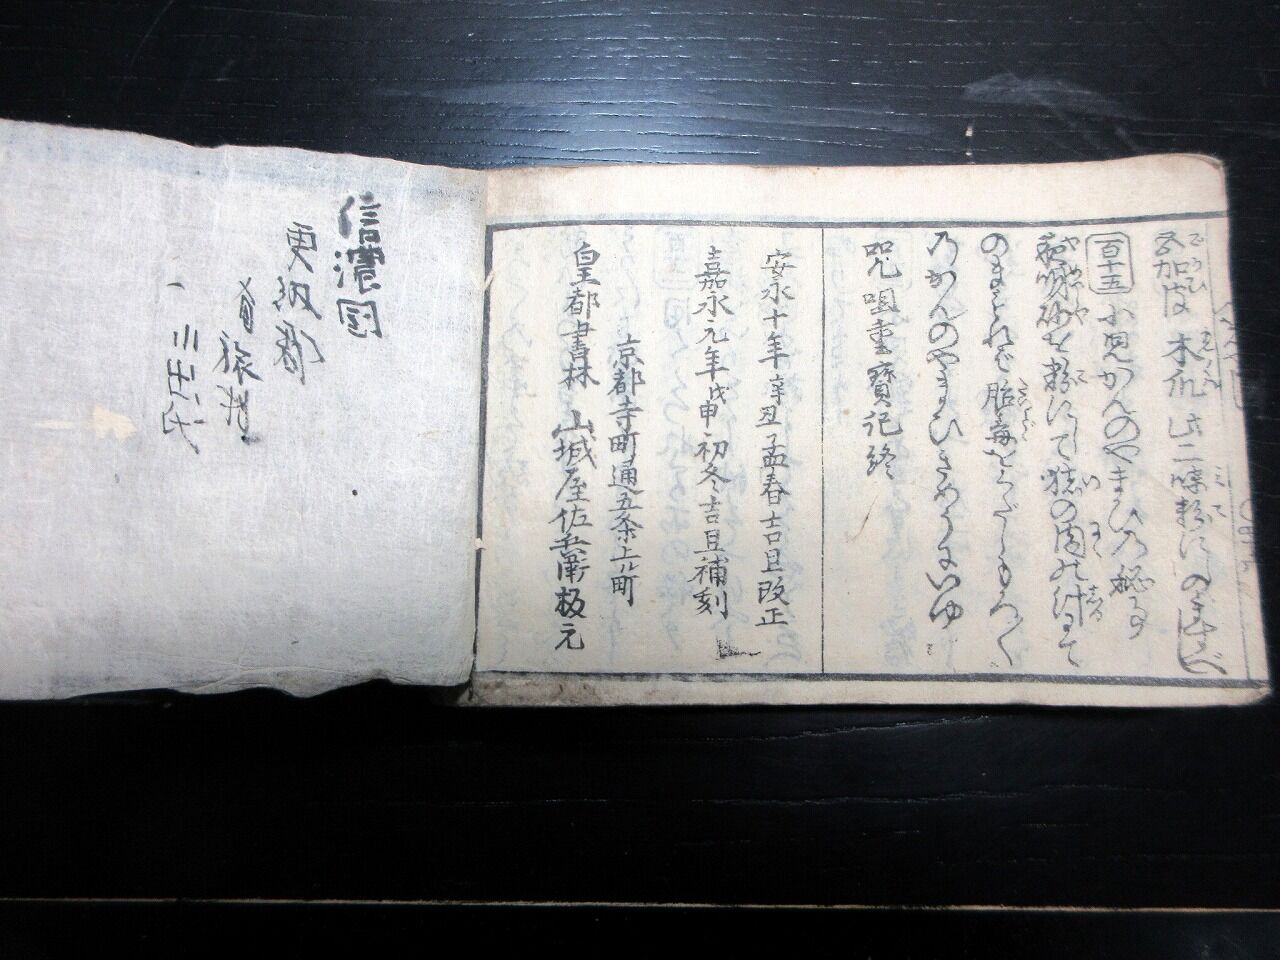 五加皮 木瓜 此二味粉にしのますべし
百十五 小児かんのやまひの秘事
粉にして
のますれば胎毒をくだしもろ〱
のかんのやまひきめうにいゆ
咒咀重寶記終
安永十年辛丑孟春吉旦改正
嘉永元年戊申初冬吉旦補刻
京都寺町通五条上ル町
皇都書林 山城屋佐兵衛板元
信濃国
更級郡